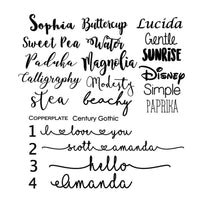 Sophia Buttercup Lucida
Sweet Pea Water Gentle
Paduka Magnolia SUNRISE
Calligraphy Modesty Disney
stea beachy Simple
PAPRIKA
COPPERPLATE Century Gothic
1 I love you
2 scott amanda
3 hello
4 amanda